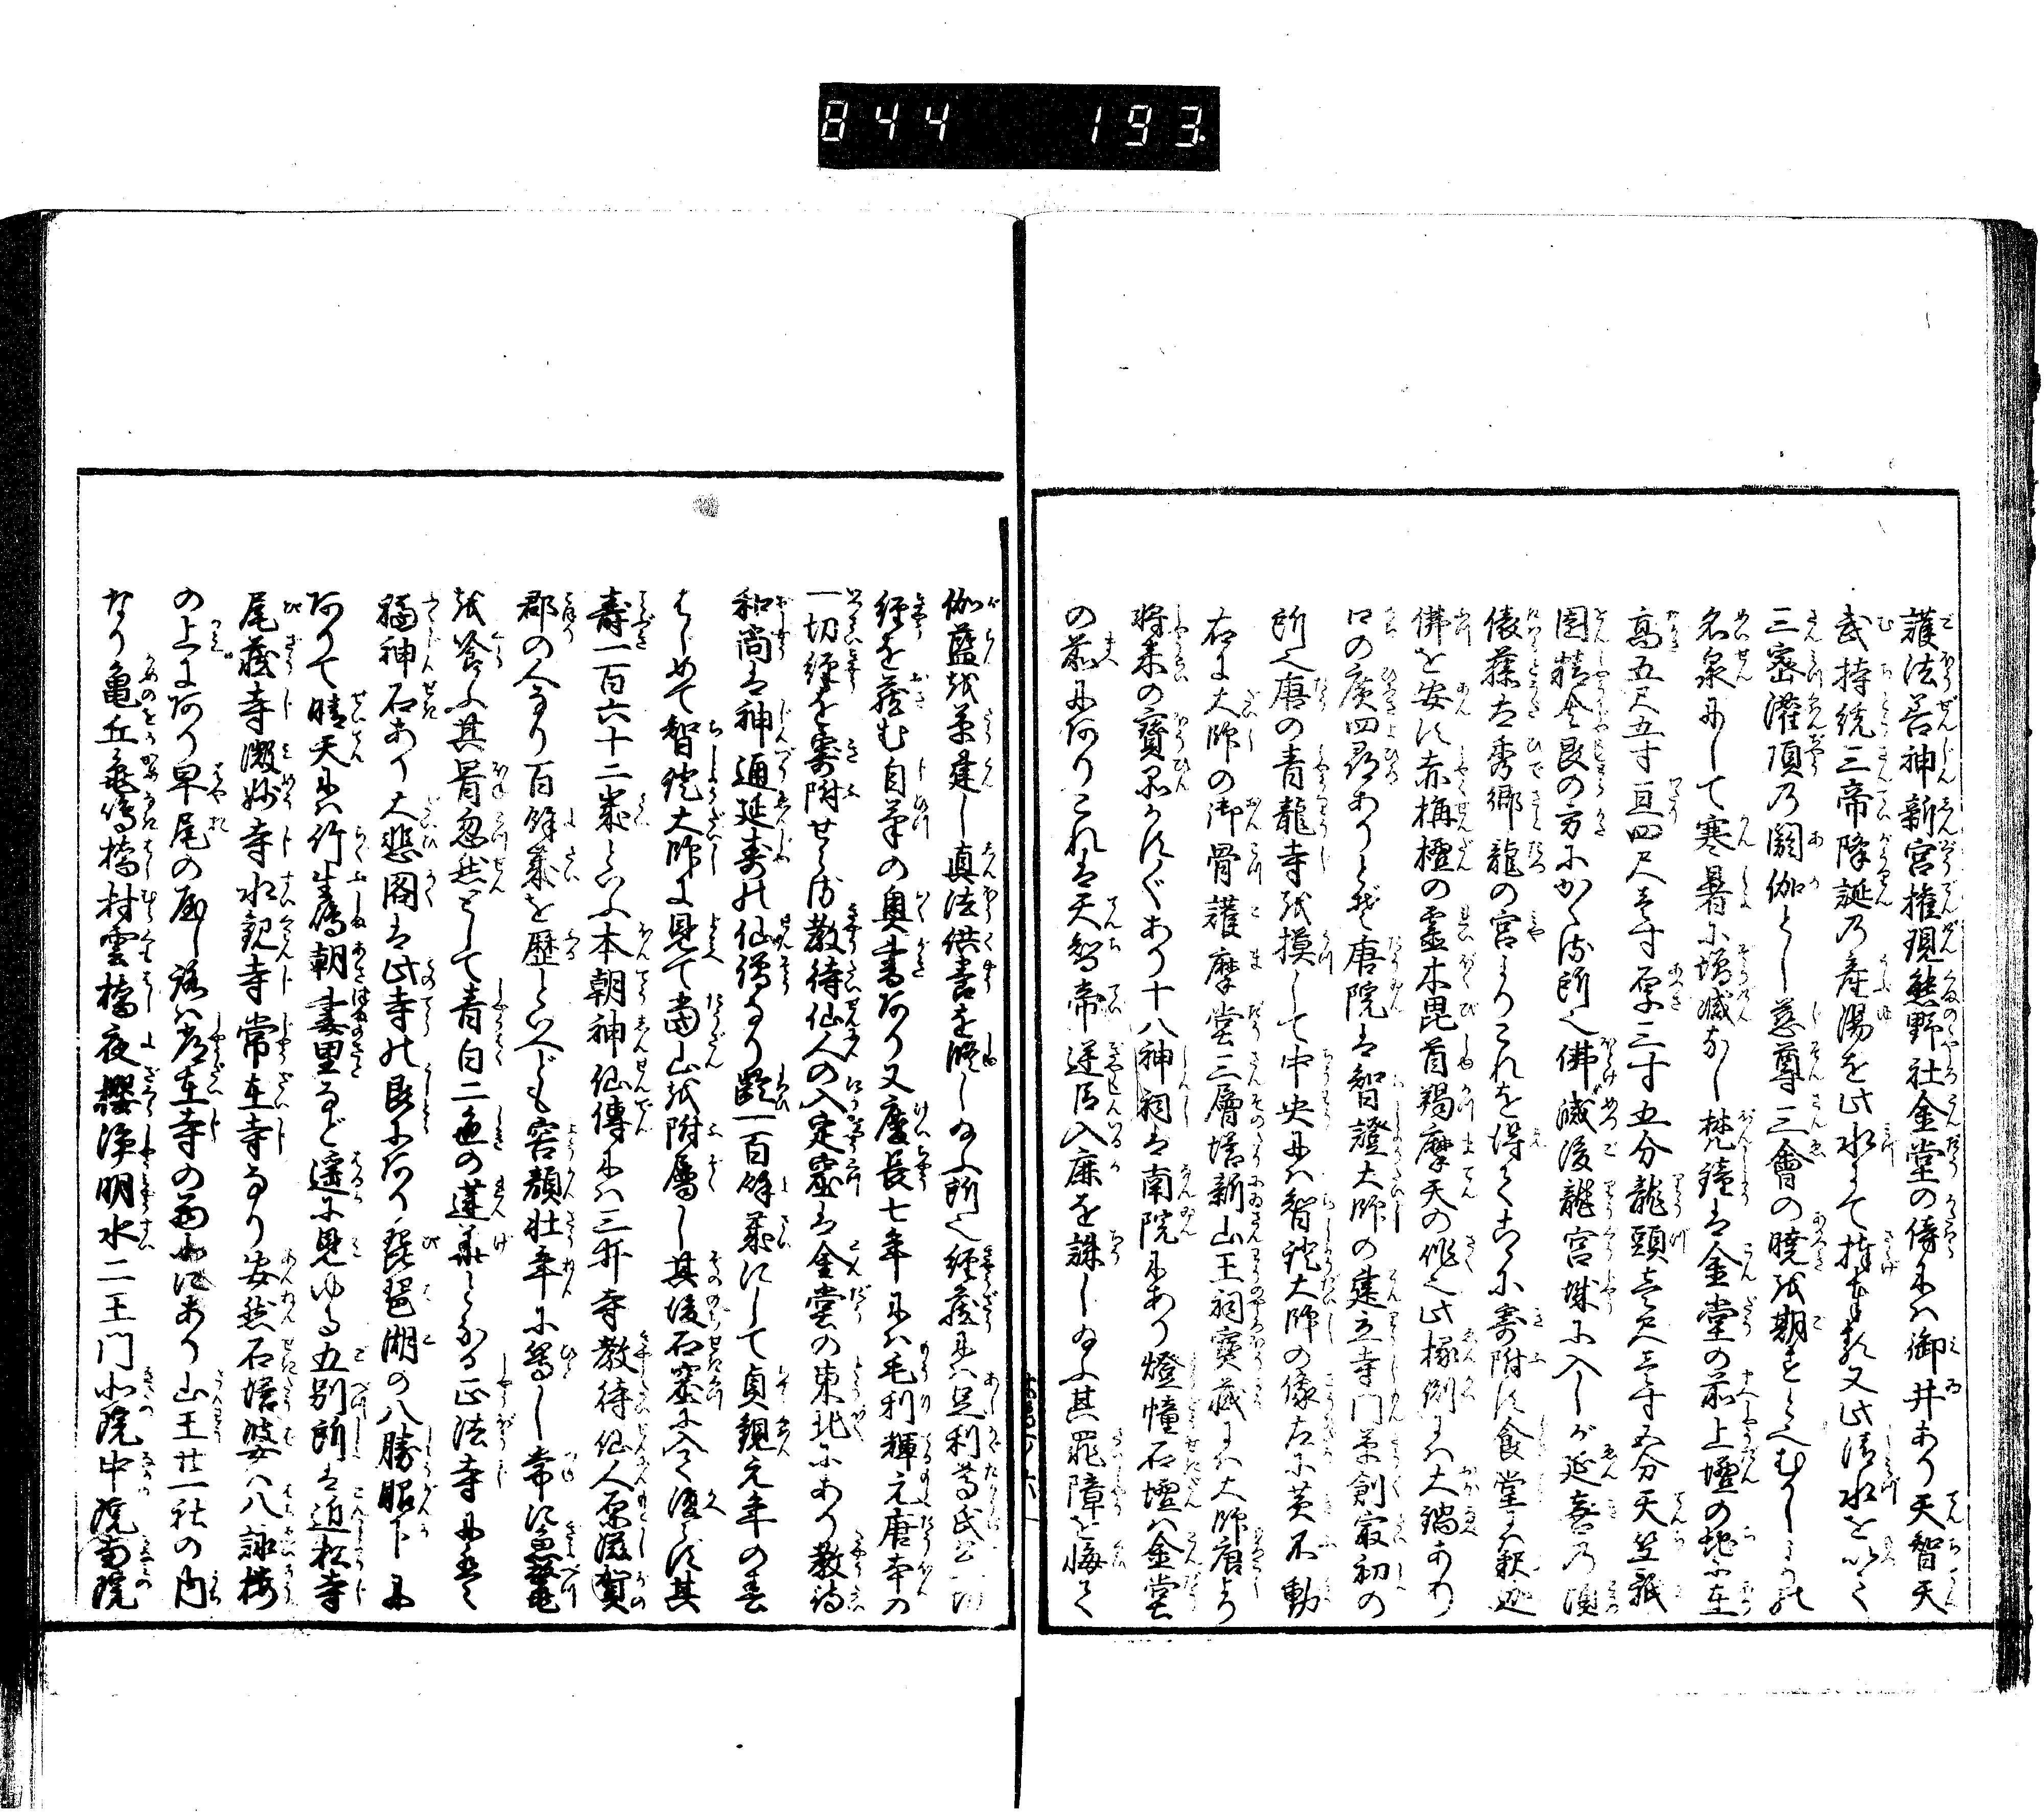 844 193
護法善神新宮権現熊野社金堂の傍にハ御井あり天智天
武持統三帝降誕乃産湯を此水にて捧奉る又此清水を以て
三密灌頂乃閼伽とし慈尊三會の暁を期すと云むかしより
名泉にして寒暑に増減なし梵鐘は金堂の前上壇の地に在
高五尺五寸亘四尺壱寸厚三寸五分龍頭壱尺壱寸五分天竺祇
園精舎艮の方にかゝる所也佛滅後龍宮城に入しが延喜乃頃
俵藤太秀郷龍の宮よりこれを得てこゝに寄附す食堂は釈迦
佛を安ず赤栴檀の霊木毘首羯摩天の作也此椽側にハ大鍋あり
口の廣四尋ありとぞ唐院は智證大師の建立寺門草創最初の
所也唐の青龍寺を摸して中央にハ智証大師の像左に黄不動
右に大師の御骨護摩堂三層塔新山王祠寶蔵にハ大師唐より
将来の寶品かずかずあり十八神祠は南院にあり燈幢石壇ハ金堂
の前にありこれは天智帝逆臣入鹿を誅し給ふ其罪障を悔て
伽藍を草建し真法供善を修し給ふ所也経蔵にハ足利尊氏公一切
経を蔵む自筆の奥書あり又慶長七年にハ毛利輝元唐本の
一切経を寄附せらる教待仙人の入定窟は金堂の東北にあり教待
和尚は神通延寿の仙僧なり齢一百餘歳にして貞観元年の春
はじめて智証大師に見て當山を附属し其後石窟に入て復らず其
壽一百六十二歳といふ本朝神仙傳にハ三井寺教待仙人原滋賀
郡の人なり百餘歳を歴といへども容顔壮年に等し常に魚鼈
を食ふ其骨忽然として青白二色の蓮華となる正法寺にハ
福神石あり大悲閣は此寺の艮にあり琵琶湖の八勝眼下に
ありて晴天にハ竹生嶋朝妻里など遥に見ゆる五別所は近松寺
尾蔵寺微妙寺水観寺常在寺なり安然石塔婆ハ八詠楼
の上にあり早尾の屋し路ハ常在寺の南にあり山王廿一社の内
なり亀丘亀嶋橋村雲橋夜櫻浄明水二王門北院中院南院